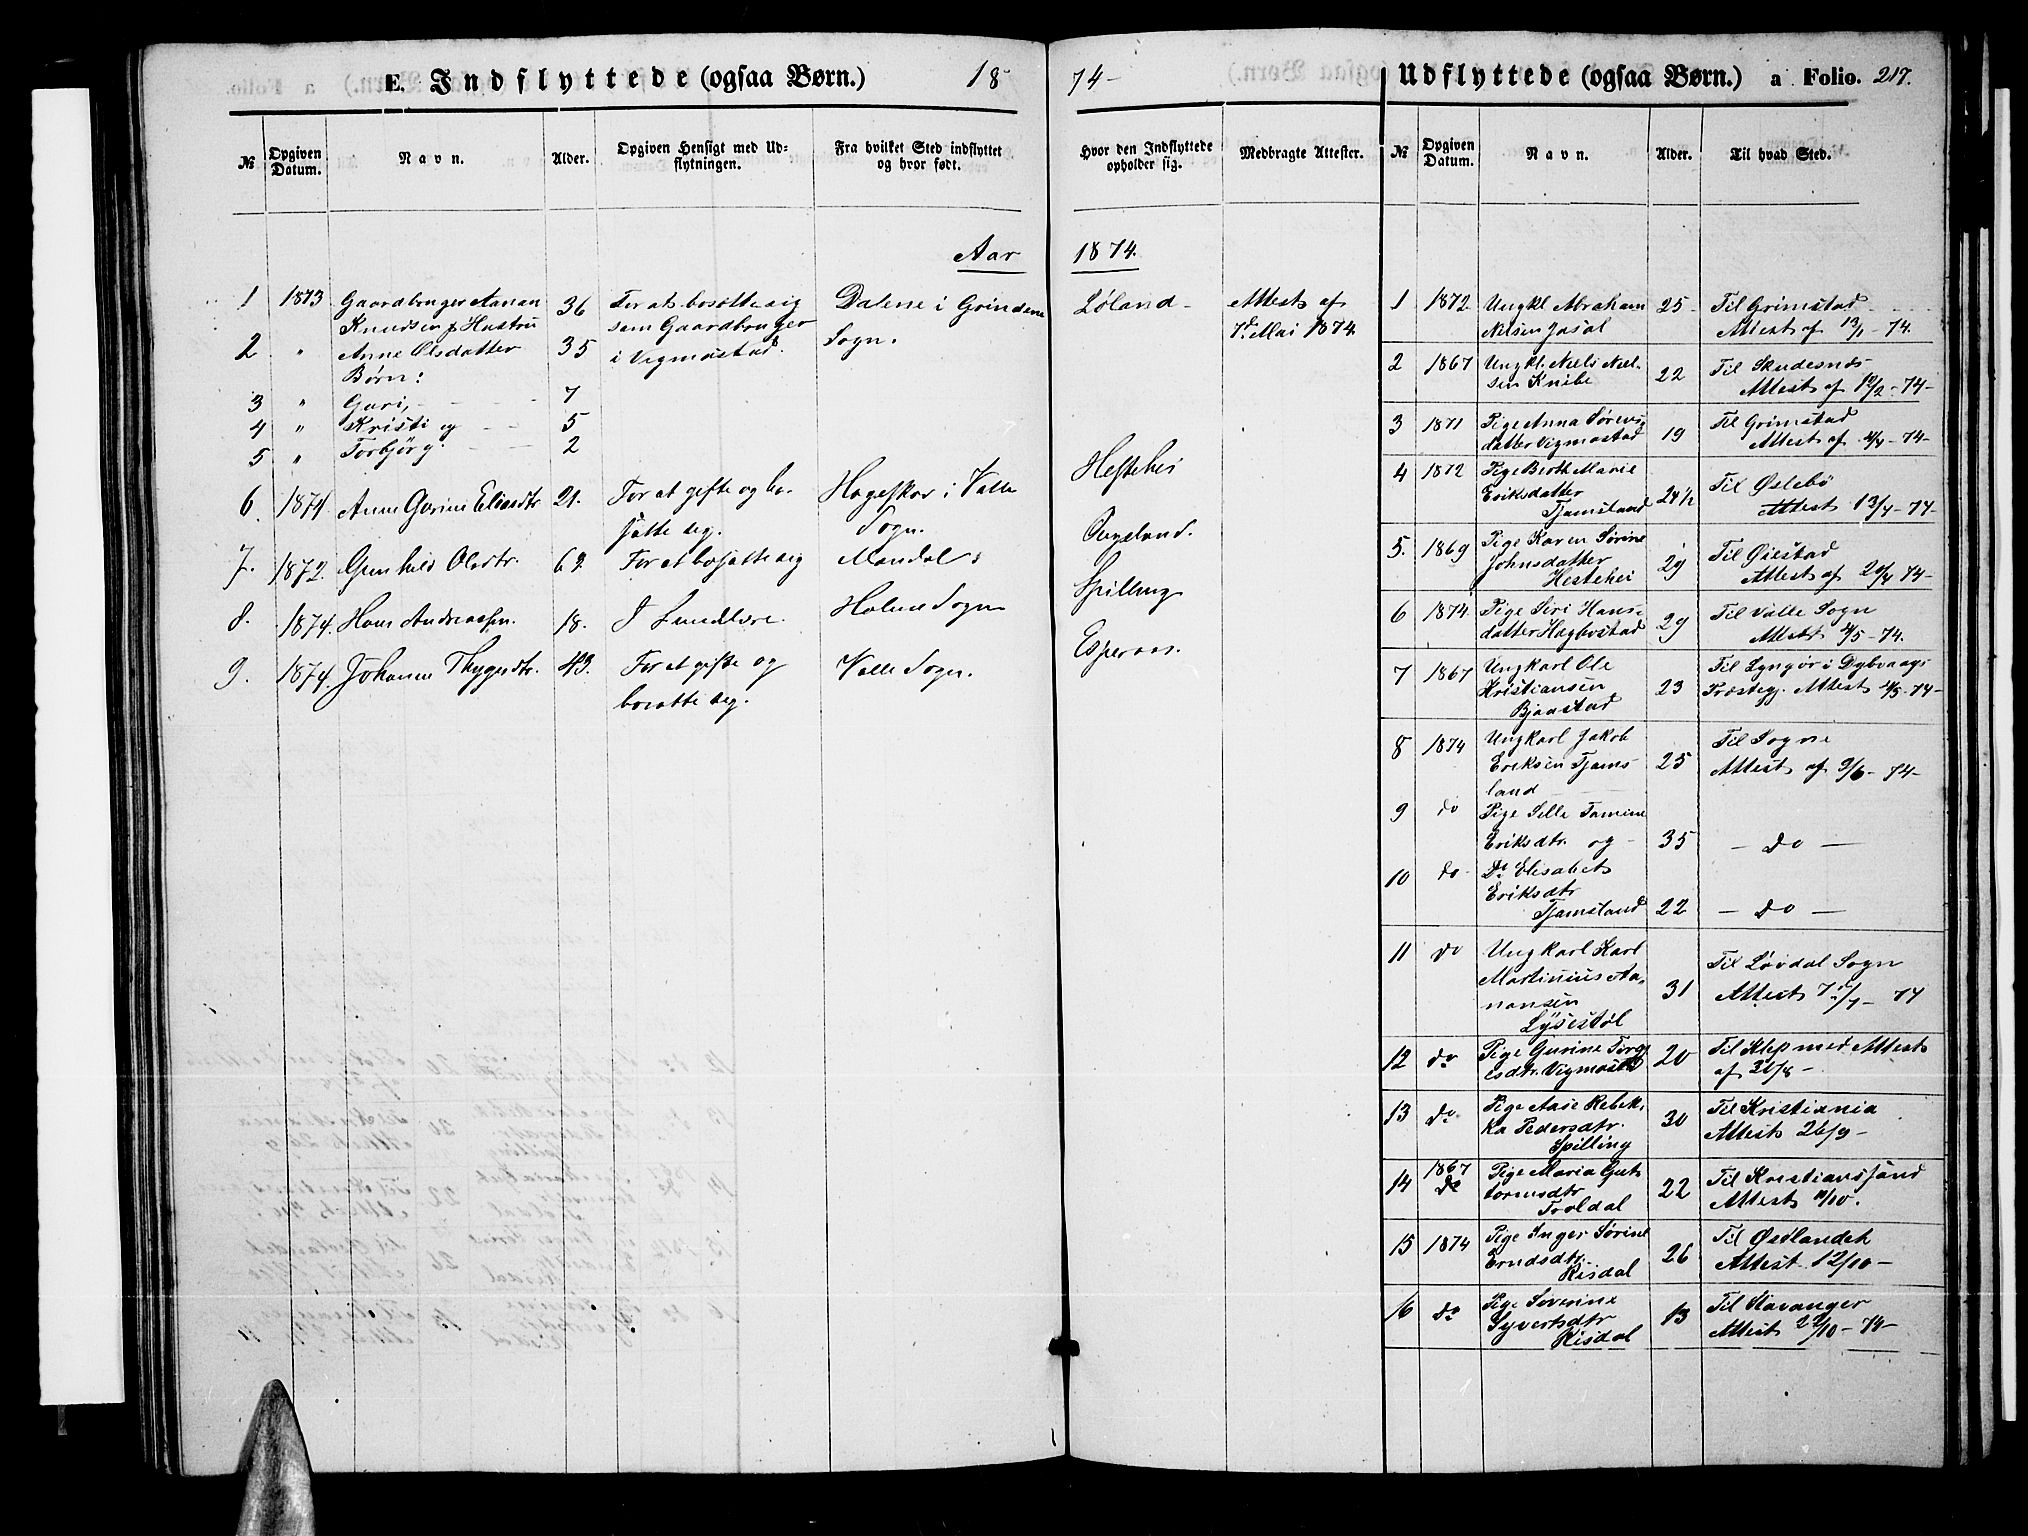 E. Indflyttede (ogsaa Børn.) 18
74-
Udflyttede (ogsaa Børn.) a Folio. 217.
№ Opgiven Datum. Navn. Alder. Opgiven Hensigt med Udflytningen. Fra hvilket Sted indflyttet og hvor født.
Hvor den Indflyttede opholder sig. Medbragte Attester.
№ Opgiven Datum. Navn. Alder. Til hvad Sted.
Aar 1874.
1 1873 Gaardbruger Aanan 36 For at bosætte sig Dalene i Grindem Løland - Attest af
Knudsen & Hustru som Gaardbruger Sogn. 7d Mai 1874.
2 " Anne Olsdatter 35 i Vigmostad.
Børn:
3 " Guri, 7
4 " Kristi og 5
5 " Torbjørg. 2
6. 1874. Anne Gurine Eliasdtr 21. For at gifte og bo- Høgeskar i Valle Hestehei
sætte sig. Sogn.
7. 1872. Gunhild Olsdtr. 62 For at bosætte sig Mandal Øvyeland.
8. 1874. Hans Andreassen. 18. I Smedlære. Holme Sogn Spilling
9. 1874. Johanne Thygesdtr. 43. For at gifte og Valle Sogn. Esperaas.
bosætte sig.
1 1872 Ungkl Abraham 25 Til Grimstad
Nilsen Jaasal Attest af 13/1 - 74.
2 1867 Ungkl. Niels Niel- 22 Til Skudesnæs
sen Knibe Attest af 12/2 - 74-
3 1871 Pige Anna Sørens- 19 Til Grimstad
datter Vigmostad Attest af 4/4 - 74-
4 1872 Pige Berthe Marie 24 1/2 Til Øslebø
Eriksdatter Attest 13/4 - 74-
Tjamsland
5. 1869 Pige Karen Sørine 29 Til Øiestad
Johnsdatter Attest af 20/4 74-
Hestehei
6 1874 Pige Siri Hans- 29 Til Valle Sogn
datter Hægbostad Attest 4/5 - 74.
7 1867 Ungkarl Ole 23 Til Lyngør i Dybvaags
Kristiansen Præstegj. Attest 4/5 - 74-
Bjaastad
8 1874 Ungkarl Jakob 25 Til Sogne
Eriksen Tjams- Attest af 3/6 - 74-
land
9 do Pige Sille Tomine
Eriksdtr. og 35 - Do -
10 do Do Elisabet
Eriksdtr
Tjamsland 22 - Do -
11 do Ungkarl Karl 31 Til Løvdal Sogn
Martinius Aa- Attest 7/7 - 74
nonsen
Lysestøl
12 do Pige Gurine Torg- 20 Til Klep med Attest
esdtr. Vigmostad af 31/8 -
13 do Pige Aase Rebek- 30 Til Kristiania
ka Pedersdtr. Attest 26/9 -
Spilling
14 1867 Pige Maria Gut- 22 Til Kristianssand
Do tormsdtr Attest 10/10.
Troldal
15 1874 Pige Inger Sørine 26 Til Østlandet
Erndsdtr. Attest 12/10 -
Risdal
16 Do Pige Severine 13 Til Stavanger
Syvertsdtr Attest 22/10 - 74-
Risdal